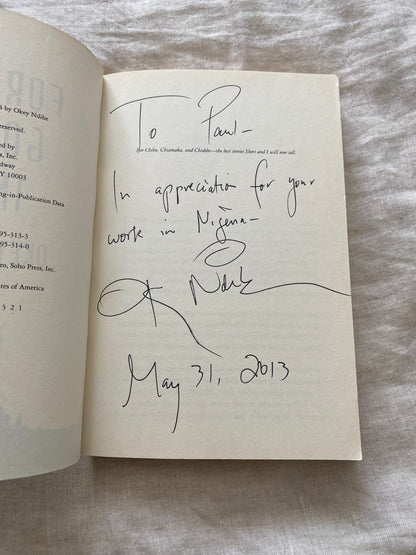 4 by Okey Ndibe
reserved.
ed by
s, Inc.
dway
Y 10003
ng-in-Publication Data
95-313-3
95-314-0
ro, Soho Press, Inc.
tes of America
3 2 1
To Paul-
For Chiba, Chiamaka, and Chidebe—the best stories Sheri and I will ever tell.
In appreciation for your
work in Nigeria-
Ok Ndibe
May 31, 2013